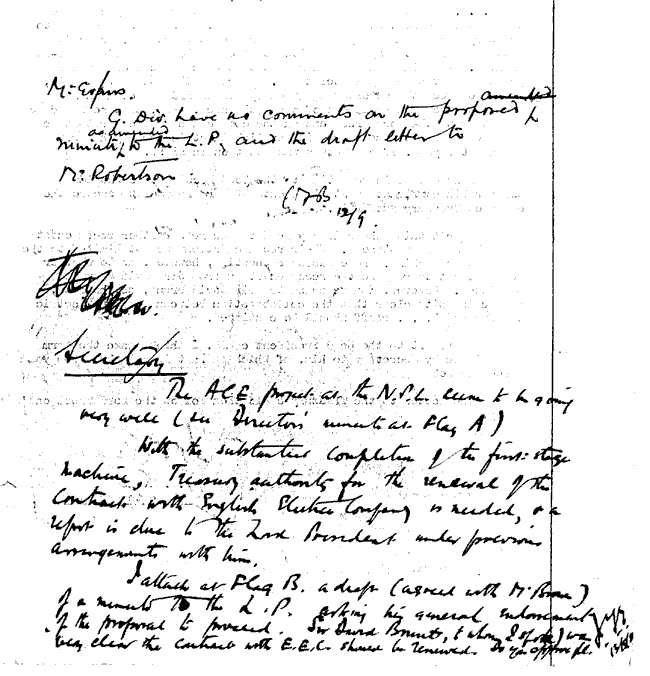 Mr
G. Div. have no comments on the proposed
amended
as amended
minute to the L.P. and the draft letter to
Mr Robertson
12/9.
Secretary
The ACE. project at the N.P.L. seems to be going
very well (see Director's minute at Flag A)
With the substantial completion of the first-stage
machine, Treasury authority for the renewal of the
Contract with English Electric Company is needed, & a
report is due to the Lord President under previous
arrangements with him.
I attach at Flag B. a draft (agreed with Mr
of a minute to the L.P. asking his general endorsement
of the proposal to proceed. Sir David Brunt, to whom I spoke, was
very clear the contract with E.E.C. should be renewed. Do you approve pl.